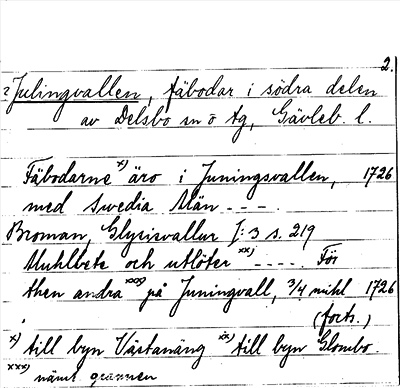 2.
? Julingvallen, fäbodar i södra delen
av Delsbo sn o tg, Gävleb. l.
Fäbodarne x) äro i Juningsvallen, 1726
med Swedia Män - - -.
Broman, Glysisvallur I: 3 s. 219
Muhlbete och utlöter xx) - - - -. För
then andra xxx) på Juningvall, 3/4 mihl 1726
(forts.)
x) till byn Västanäng xx) till byn Glombo
xxx) näml. grannen